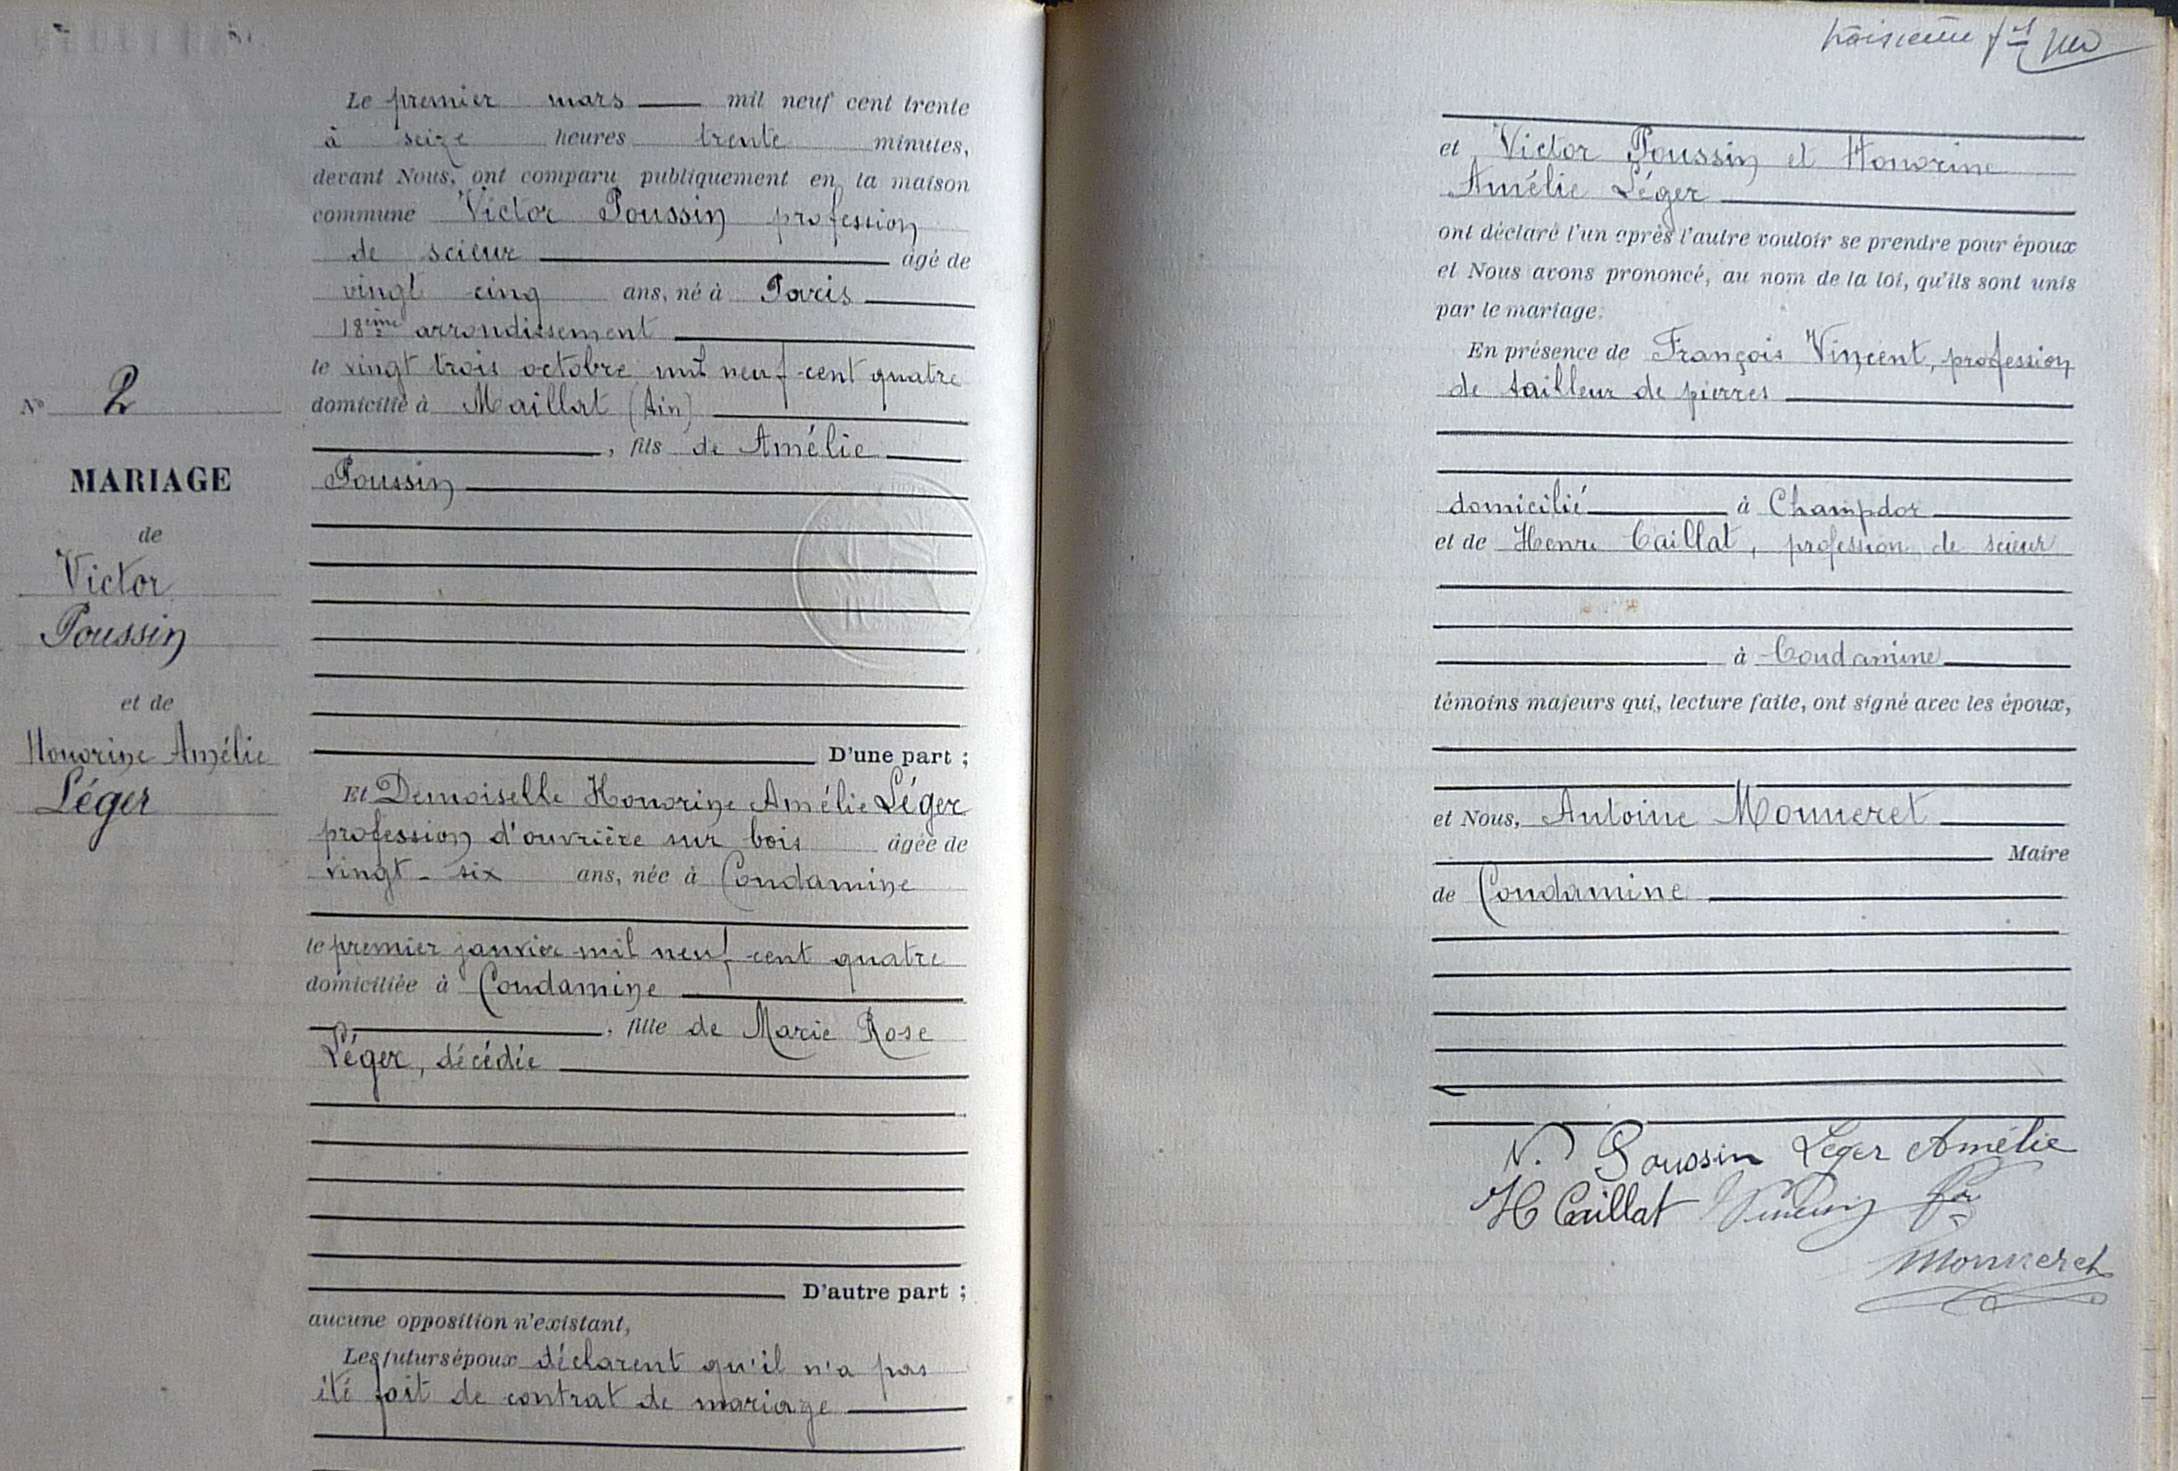 Le premier mars mil neuf cent trente
à seize heures trente minutes,
devant Nous, ont comparu publiquement en la maison
commune Victor Poussin profession
de scieur âgé de
vingt cinq ans, né à Paris
18ème arrondissement
le vingt trois octobre mil neuf cent quatre
domicilié à Maillat (Ain)
, fils de Amélie
Poussin
D'une part ;
Et Demoiselle Honorine Amélie Léger
profession d'ouvrière sur bois âgée de
vingt-six ans, née à Condamine
le premier janvier mil neuf cent quatre
domiciliée à Condamine
, fille de Marie Rose
Léger, décédée
D'autre part ;
aucune opposition n'existant,
Les futurs époux déclarent qu'il n'a pas
été fait de contrat de mariage
N° 2
MARIAGE
de
Victor
Poussin
et de
Honorine Amélie
Léger
troisième
et Victor Poussin et Honorine
Amélie Léger
ont déclaré l'un après l'autre vouloir se prendre pour époux
et Nous avons prononcé, au nom de la loi, qu'ils sont unis
par le mariage.
En présence de François Vincent, profession
de tailleur de pierres
domicilié à Champdor
et de Henri Caillat, profession de scieur
à Condamine
témoins majeurs qui, lecture faite, ont signé avec les époux,
et Nous, Antoine Monneret
Maire
de Condamine
V. Poussin Leger Amélie
H Caillat
Monneret